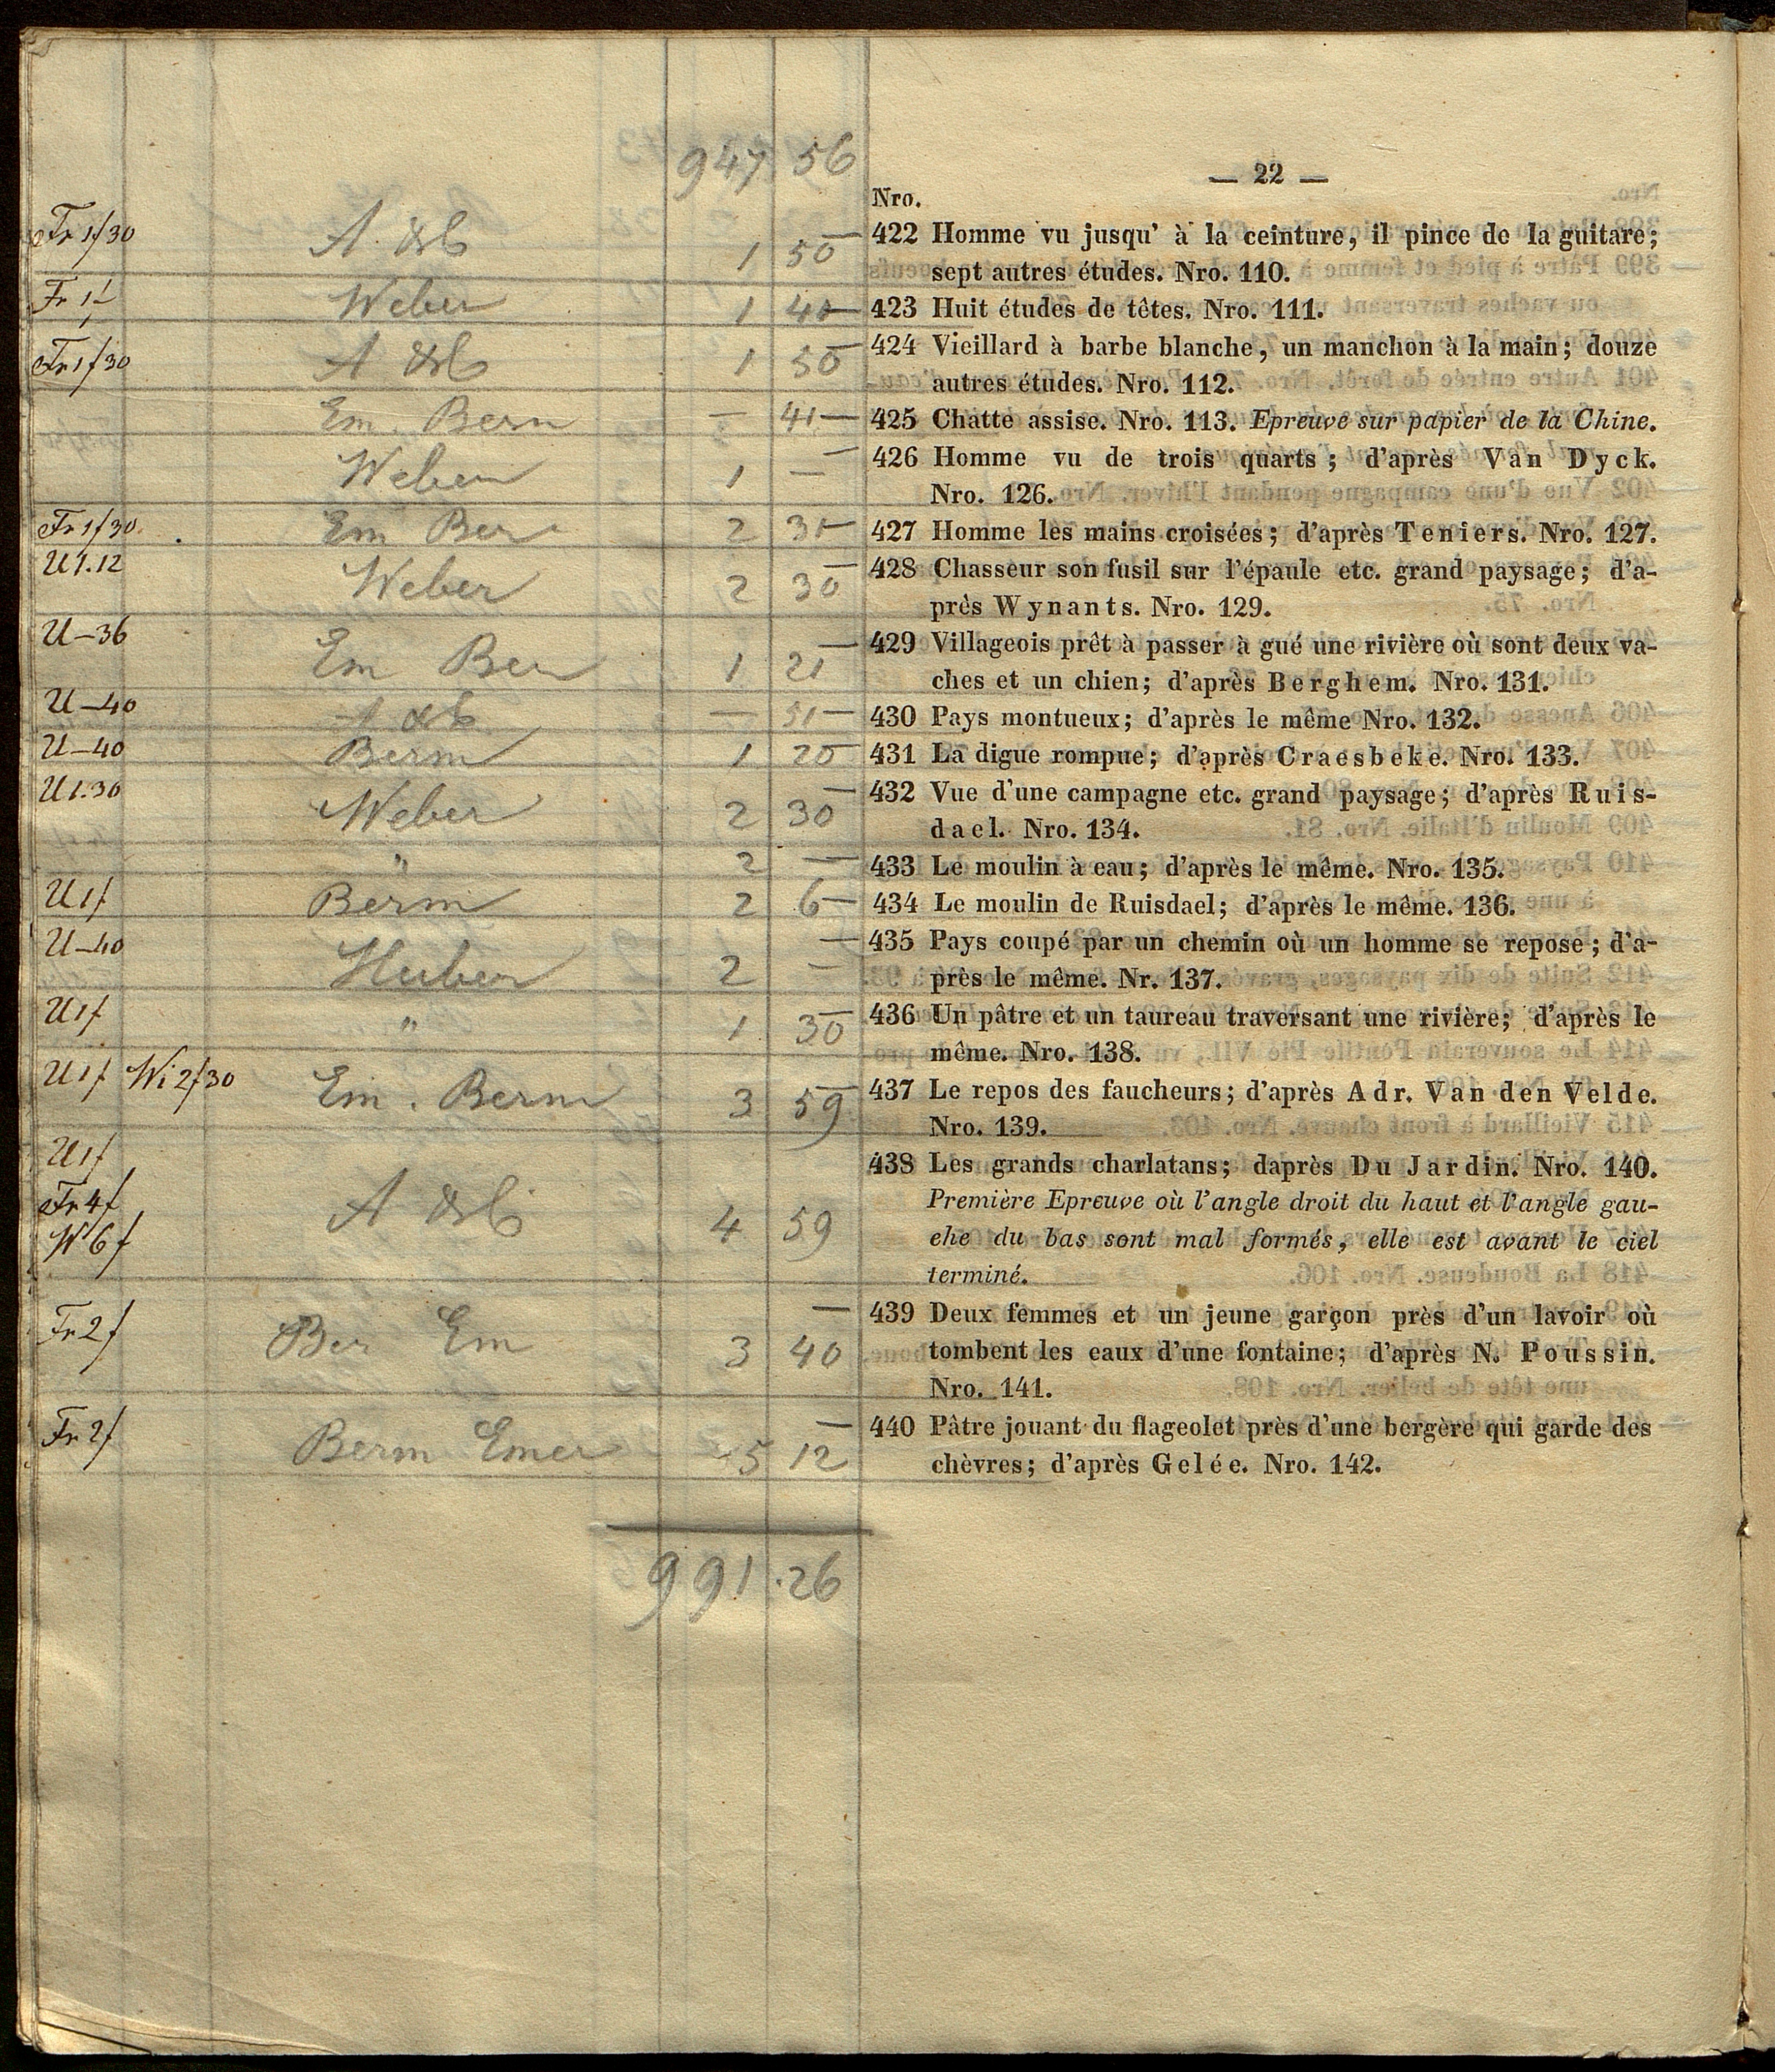 947 56
— 22 —
Nro.
Fr 1f30 1 50 — 422 Homme vu jusqu' à la ceinture, il pince de la guitare;
sept autres études. Nro. 110.
Fr 1f Weber 1 40 — 423 Huit études de têtes. Nro. 111.
Fr 1f30 1 50 — 424 Vieillard à barbe blanche, un manchon à la main; douze
autres études. Nro. 112.
Em. Bern — 41 — 425 Chatte assise. Nro. 113. Epreuve sur papier de la Chine.
Weber 1 — — 426 Homme vu de trois quarts; d'après Van Dyck.
Nro. 126.
Fr 1f30. Em Ber 2 31 — 427 Homme les mains croisées; d'après Teniers. Nro. 127.
U 1.12 Weber 2 30 — 428 Chasseur son fusil sur l'épaule etc. grand paysage; d'a-
près Wynants. Nro. 129.
U — 36 Em Ber 1 21 — 429 Villageois prêt à passer à gué une rivière où sont deux va-
ches et un chien; d'après Berghem. Nro. 131.
U — 40 — 51 — 430 Pays montueux; d'après le même Nro. 132.
U — 40 Berm 1 20 — 431 La digue rompue; d'après Craesbeke. Nro. 133.
U 1.30 Weber 2 30 — 432 Vue d'une campagne etc. grand paysage; d'après Ruis-
dael. Nro. 134.
" 2 — 433 Le moulin à eau; d'après le même. Nro. 135.
U 1f Berm 2 6 — 434 Le moulin de Ruisdael; d'après le même. 136.
U — 40 Huber 2 — — 435 Pays coupé par un chemin où un homme se repose; d'a-
près le même. Nr. 137.
U 1f " 1 30 — 436 Un pâtre et un taureau traversant une rivière; d'après le
même. Nro. 138.
U 1f Wi 2f30 Em. Berm 3 59 — 437 Le repos des faucheurs; d'après Adr. Van den Velde.
Nro. 139.
U 1f 438 Les grands charlatans; daprès Du Jardin. Nro. 140.
Fr 4f 4 59 Première Epreuve où l'angle droit du haut et l'angle gau-
W 6f ehe du bas sont mal formés, elle est avant le ciel
terminé.
Fr 2f Ber Em 3 40 — 439 Deux femmes et un jeune garçon près d'un lavoir où
tombent les eaux d'une fontaine; d'après N. Poussin.
Nro. 141.
Fr 2f Berm Emer 5 12 — 440 Pâtre jouant du flageolet près d'une bergère qui garde des
chèvres; d'après Gelée. Nro. 142.
991.26